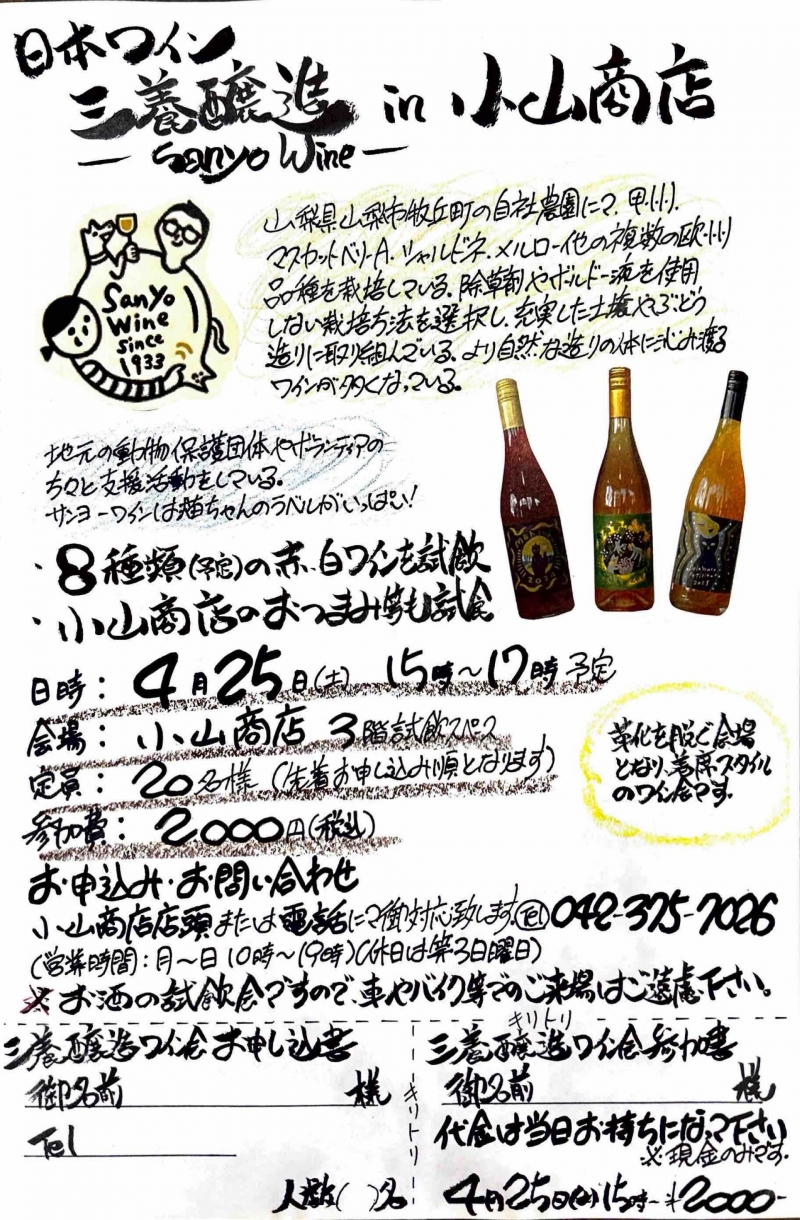 日本ワイン
三養醸造 in 小山商店
— Sanyo Wine —
Sanyo
Wine
Since
1933
山梨県山梨市牧丘町の自社農園にて、甲州、
マスカットベリーA、シャルドネ、メルロー他の複数の欧州
品種を栽培している。除草剤やボルドー液を使用
しない栽培方法を選択し、充実した土壌やぶどう
造りに取り組んでいる。より自然な造りの体に沁み渡る
ワインが多くなっている。
地元の動物保護団体やボランティアの
方々と支援活動をしている。
サンヨーワインは猫ちゃんのラベルがいっぱい！
・8種類(予定)の赤、白ワインを試飲
・小山商店のおつまみ等も試食
日時：4月25日(土) 15時〜17時予定
会場：小山商店 3階試飲スペース
定員：20名様（先着お申し込み順となります）
参加費：2000円(税込)
革靴を脱ぐ会場
となり、着席スタイル
のワイン会です。
お申込み・お問い合わせ
小山商店店頭または電話にて御対応致します。Tel 042-375-7026
(営業時間：月〜日 10時〜19時)(休日は第3日曜日)
※お酒の試飲会ですので、車やバイク等でのご来場はご遠慮下さい。
キリトリ
三養醸造ワイン会お申し込書
御名前 様
Tel
人数( )名
キリトリ
三養醸造ワイン会参加書
御名前 様
代金は当日お持ちになって下さい
※現金のみです。
4月25日(土)15時〜 ¥2000-